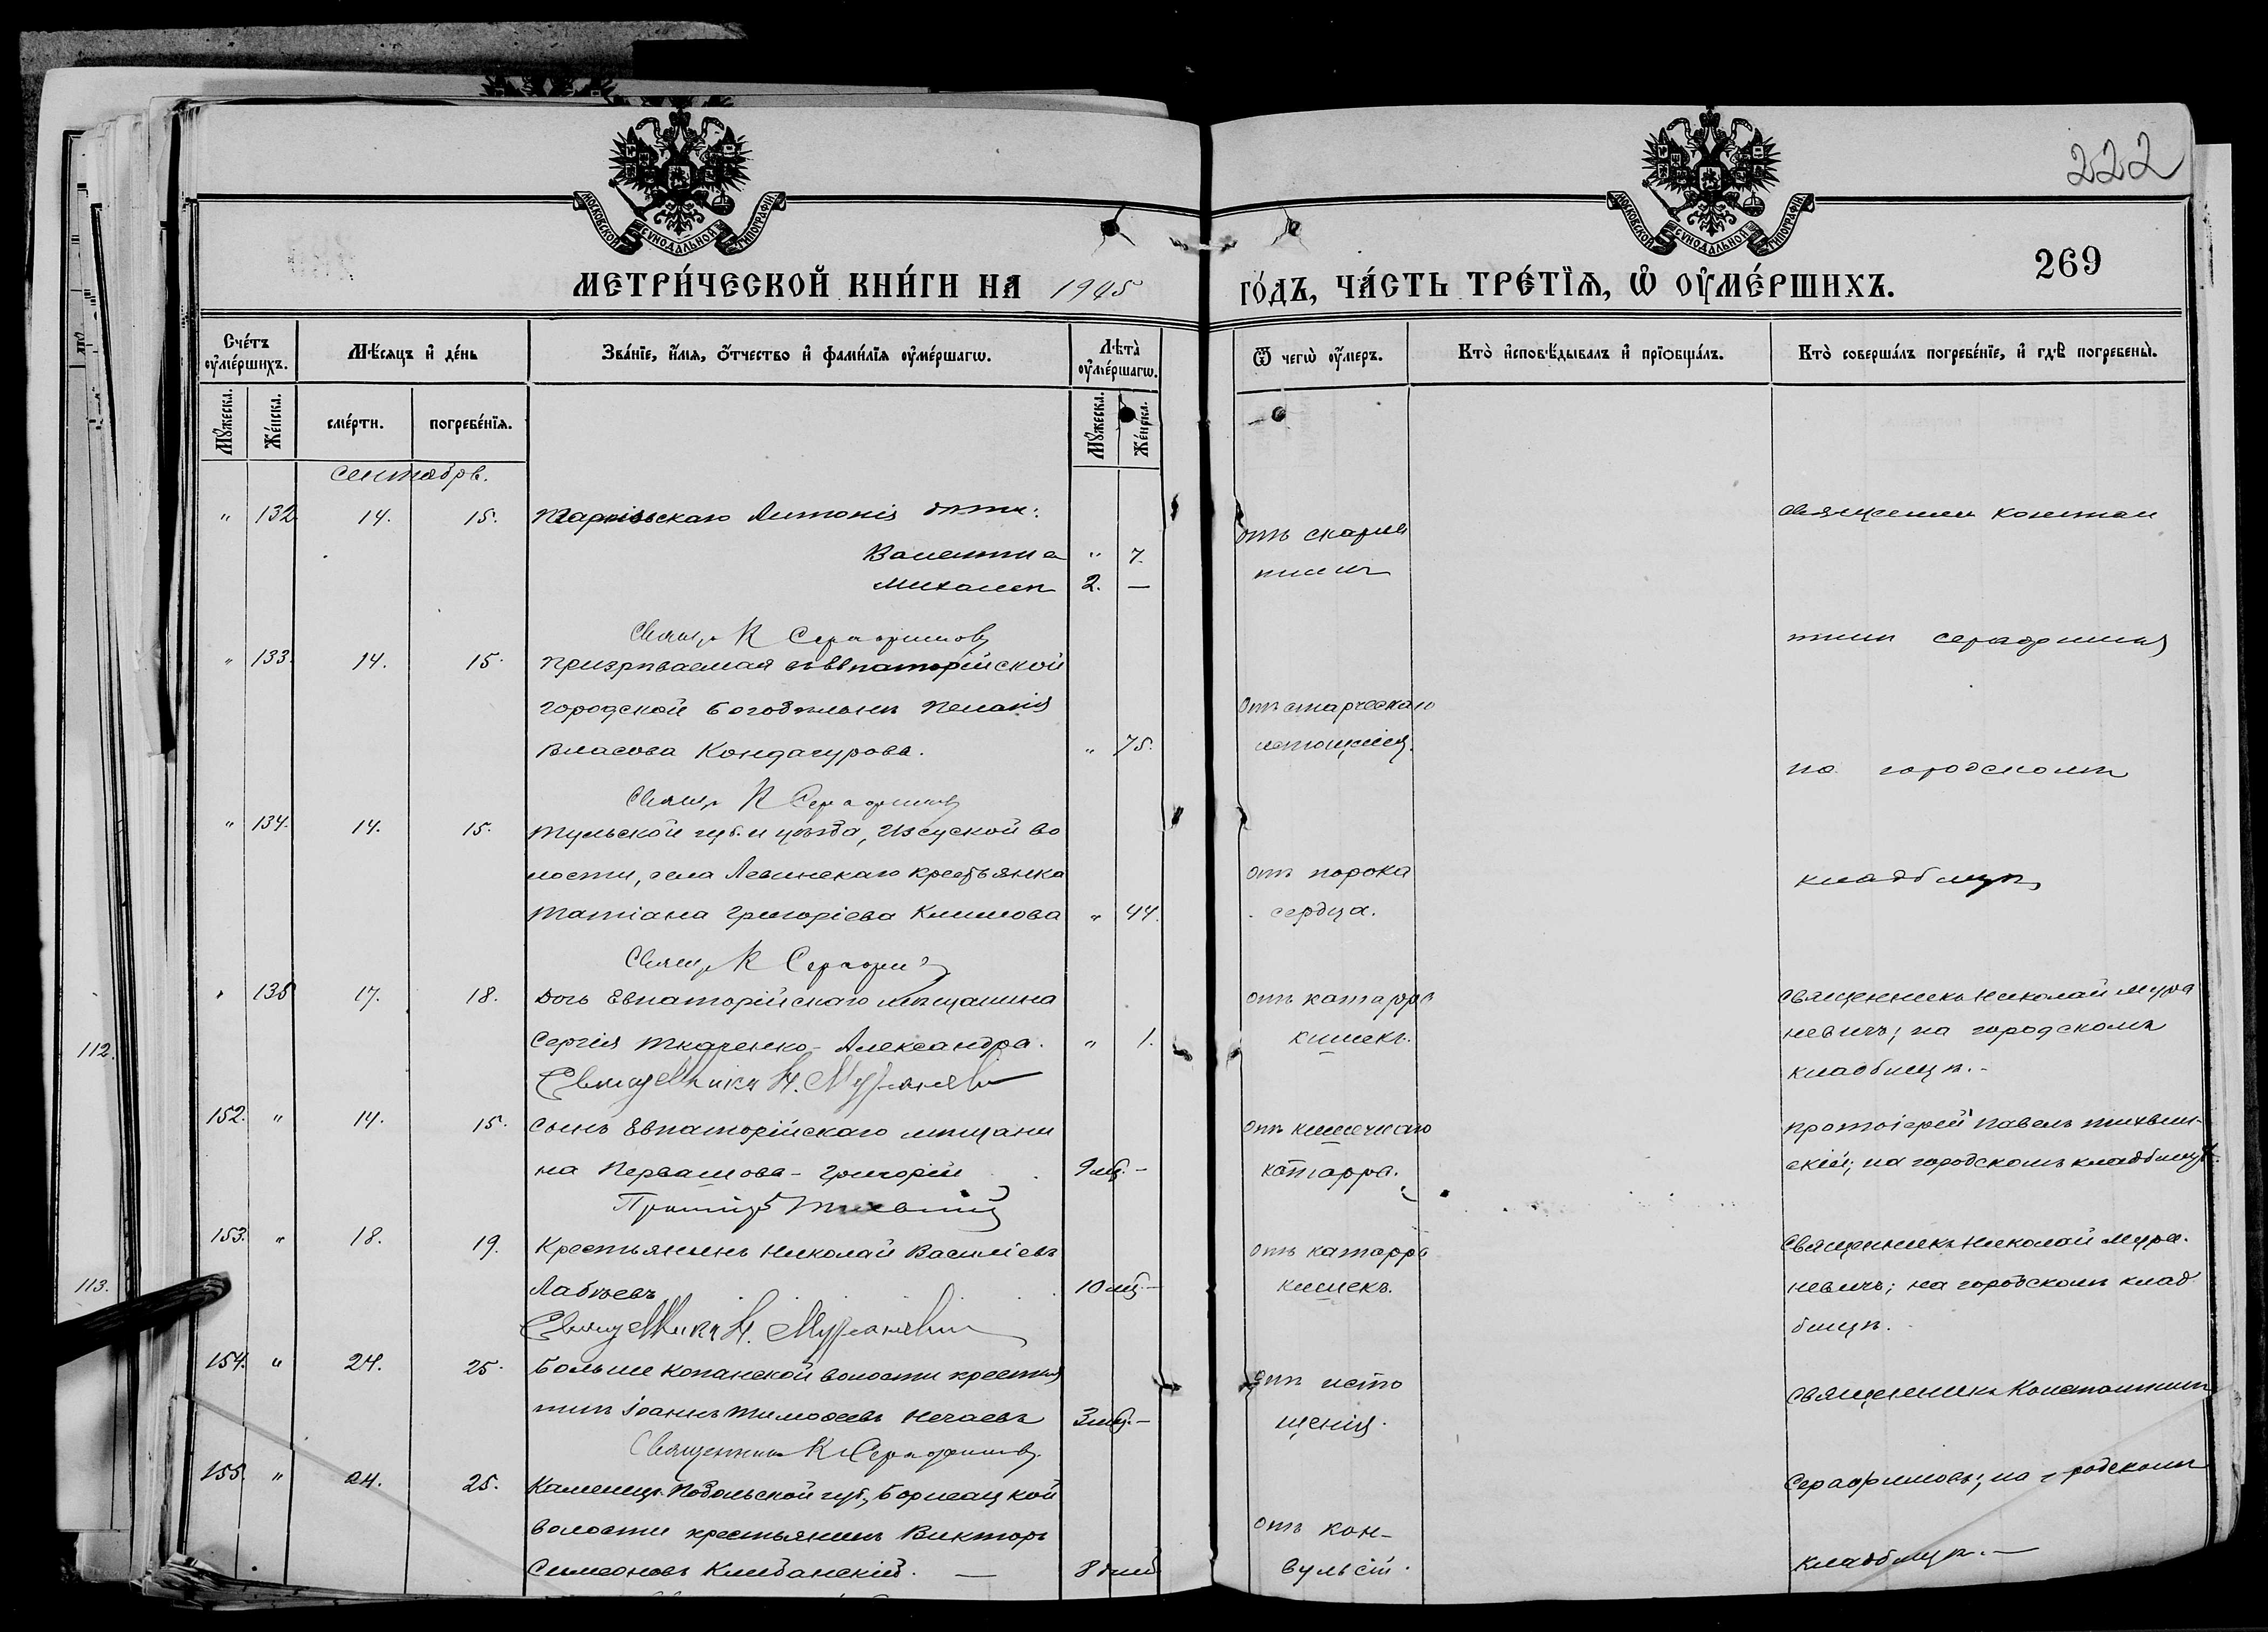 222
МОСКОВСКОЙ СѴНОДАЛЬНОЙ ТИПОГРАФІИ
МОСКОВСКОЙ СѴНОДАЛЬНОЙ ТИПОГРАФІИ
269
МЕТРИ́ЧЕСКОЙ КНИ́ГИ НА 1905 ГО́ДЪ, ЧА́СТЬ ТРЕ́ТЇЯ, Ѡ҆ ОУ҆МЕ́РШИХЪ.
Сче́тъ оу҆ме́ршихъ.
Мѣ́сяцъ и҆ де́нь
Зва́нїе, и҆́мя, ѻ҆́тчество и҆ фами́лїя оу҆ме́ршагѡ.
Лѣта̀ оу҆ме́ршагѡ.
Ѿ чегѡ̀ оу҆́меръ.
Кто̀ и҆сповѣ́дывалъ и҆ прїѡбща́лъ.
Кто̀ соверша́лъ погребе́нїе, и҆ гдѣ̀ погребены̀.
Мꙋ́жеска.
Же́нска.
сме́рти.
погребе́нїя.
Мꙋ́жеска.
Же́нска.
Сентябрь.
" 132. 14. 15. Антонія дѣти:
Валентина " 7.
Михаилъ 2. —
отъ скарла
тины
Священник Констан
Свящ. К Серафимовъ
тинъ Серафимовъ
" 133. 14. 15. Призрѣваемая въ Евпаторійской
городской богодѣльнѣ Пелагія
Власова Кондагурова. " 75.
отъ старческаго
истощенія.
на городскомъ
Свящ. К Серафимовъ
" 134. 14. 15. Тульской губ. и уѣзда, во
лости, села крестьянка
Татіана Григоріева Климова " 44.
отъ порока
сердца.
кладбищѣ
Свящ. К Серафимовъ
" 135 17. 18. Дочь Евпаторійскаго мѣщанина
Сергія Ткаченко - Александра. " 1.
отъ катарра
кишекъ.
Священникъ Николай Мура
невичъ; на городскомъ
кладбищѣ. -
112.
Священникъ Н. Мураневичъ
152. " 14. 15. Сынъ Евпаторійскаго мѣщани
на Первашова - Григорій 9 мц. -
отъ кишечнаго
катарра.
Протоіерей Павелъ Тихвин-
скій; на городскомъ кладбищѣ.
Тихвинскій
153. " 18. 19. Крестьянинъ Николай Василіевъ
10 мц. -
отъ катарра
кишекъ.
Священникъ Николай Мура-
невичъ; на городскомъ клад
бищѣ.
113.
Священникъ Н. Мураневичъ
154. " 24. 25. Больше Копанской волости крестья
нинъ Іоаннъ Тимофеевъ Нечаевъ 3 мц. -
отъ исто
щенія.
Священникъ Константинъ
Священникъ К Серафимовъ.
155. " 24. 25. Каменецъ-Подольской губ.,
волости крестьянинъ Викторъ
Симеоновъ Клибанскій. — 8 дней
отъ кон-
вульсій.
Серафимовъ; на городскомъ
кладбищѣ. —